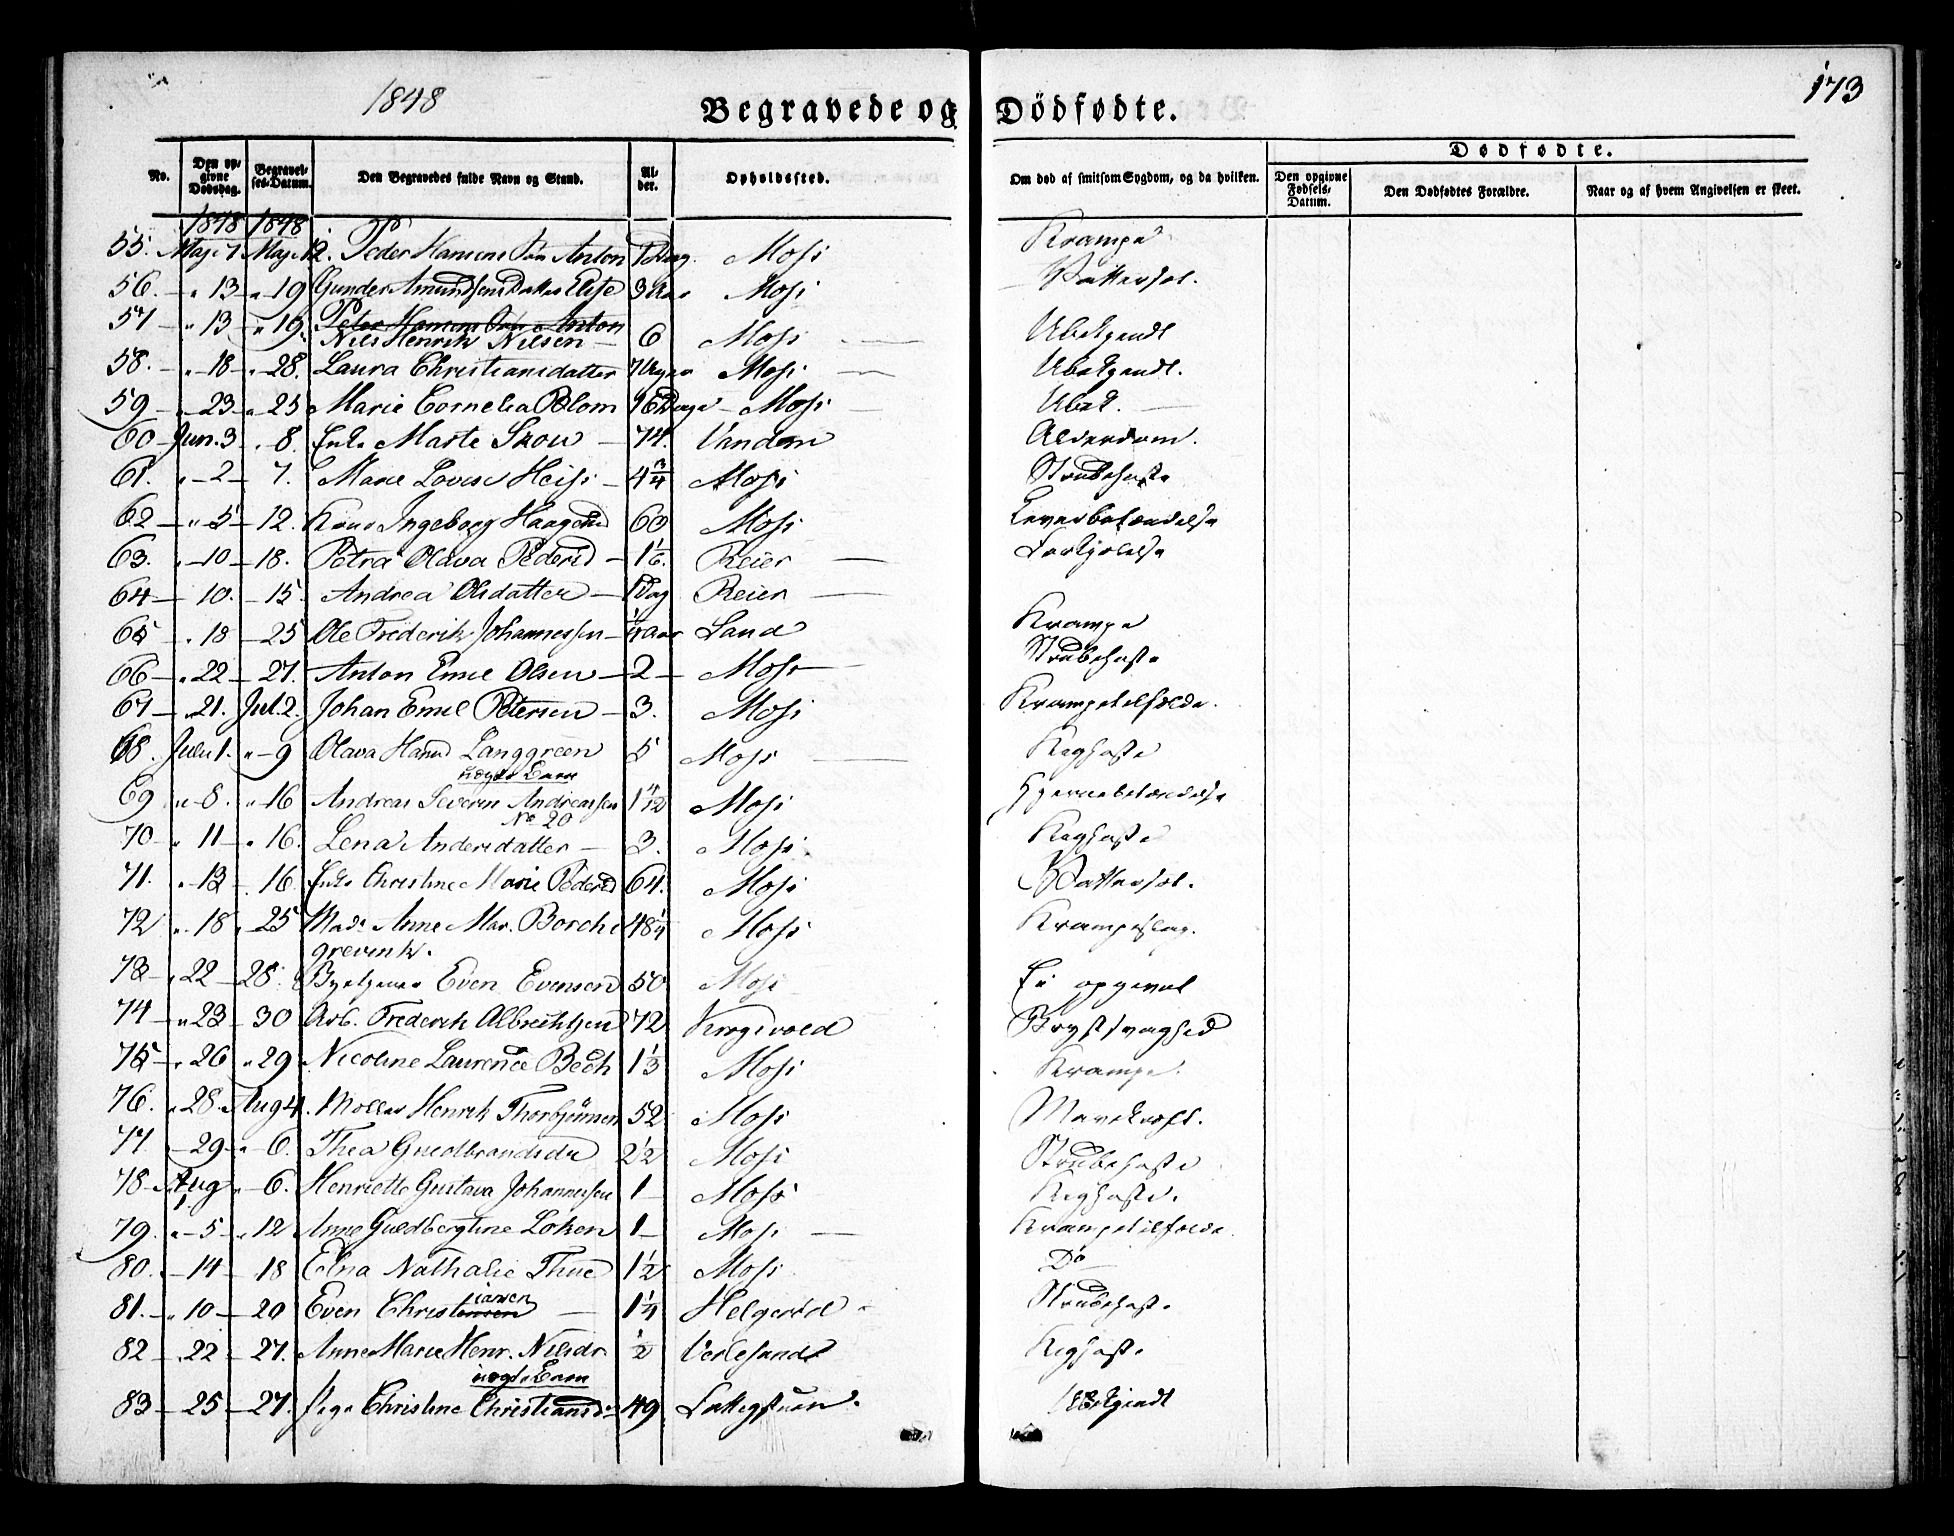 1848
173
Begravede og Dödfødte.
No.
Den opgivne Dødsdag.
Begravelses-Datum.
Den Begravedes fulde Navn og Stand.
Alder.
Opholdssted.
Om død af smitsom Sygdom, og da hvilken.
Dødfødte.
Den opgivne Fødsels-Datum.
Den Dødfødtes Forældre.
Naar og af hvem Angivelsen er skeet.
1848 1848
55. Maj 7 Maj 12. Peder Hansens Søn Anton Moss Krampe
56. " 13 " 19 Gunder Amundsens Datter Elise 3 Moss Vattersot.
57 " 13 " 19. Peter Hansens Søn Anton
Nils Henrik Nilsen 6 Moss Ubekjendt
58. " 18 " 28. Laura Christiansdatter Moss Ubekjendt.
59 " 23 " 25 Marie Cornelia Blom Moss Ubek.
60 Jun. 3 " 8. Enke Marte Skou 74. Vandem Alderdom.
61. " 2 7. Marie Lovise Heiss 4 3/4 Moss Strubehoste
62 " 5 12. Kone Ingeborg Haagensd 60 Moss Leverbetændelse
63. " 10 18. Petra Olava Pedersd 1 1/6. Reier Forkjølelse
64 10. 15. Andrea Olsdatter 1 Dag Reier
65 " 18 25 Ole Frederik Johannessen 1/4 Aar Sand Krampe
66 " 22 27. Anton Emil Olsen 2 Moss Strubehoste
67 " 21. Jul. 2. Johan Emil Petersen 3. Moss Krampetilfælde.
68. Juli 1. " 9 Olava Hansd Langgreen 5 Moss Kighoste
uægte Barn
69 " 8. " 16 Andreas Severin Andreassen 1 4/12 Moss Hjernebetændelse
No 20
70 " 11 " 16. Lena Andersdatter 3. Moss Kighoste
71. " 13 16. Enke Christine Marie Pedersd 64. Moss Vattersot.
72 " 18 25 Mad. Anne Mar. Borch 48 1/4 Moss Krampeslag.
grevink.
73 " 22 28. Even Evensen 50 Moss Ei opgivet
74 " 23 30 Arb. Frederik Albrechtsen 72 Krogsvold Brystsvaghed
75 " 26 " 29 Nicoline Laurence Bech 1 1/3 Moss Krampe.
76. " 28. Aug 4. Møller Henrik Thorbjørnsen 52 Moss Mavekræft.
77. 29 " 6. Thea Guldbrandsdr 2 1/2 Moss Strubehoste
78 Aug 1 " 6. Henriette Gustava Johannessen 1 Moss Kighoste.
79. " 5 " 12 Anne Guldbergine Løken 1 Moss Krampetilfælde.
80. 14 18 Elna Nathalie Thue 1 1/2 Moss Do
81. " 10 20 Even Christensen iansen 1 1/4 Helgerød Strubehoste.
82 22 27. Anne Marie Henr. Nilsdr. 1/2 Verlesand Kighoste
uægte Barn
83 25 27. Pige Christine Christiansdr 49 Ubekjendt